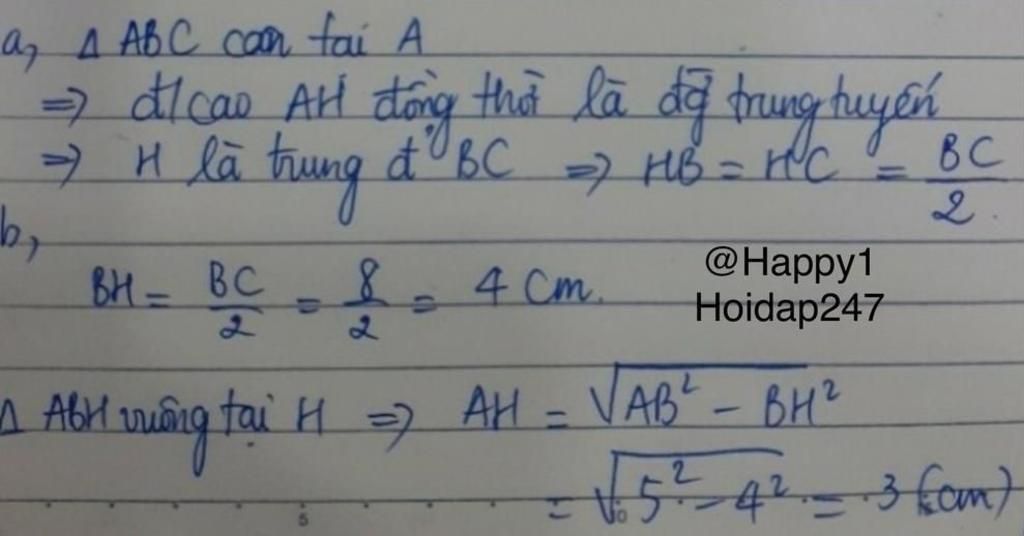 a, Δ ABC can tai A
=> đ/cao AH đồng thời là đg̃ trung tuyến
=> H là trung đ' BC => HB = HC = BC/2.
b,
BH = BC/2 = 8/2 = 4 cm.
@Happy1
Hoidap247
Δ ABH vuông tại H => AH = √AB² - BH²
= √5² - 4² = 3 (cm)
5